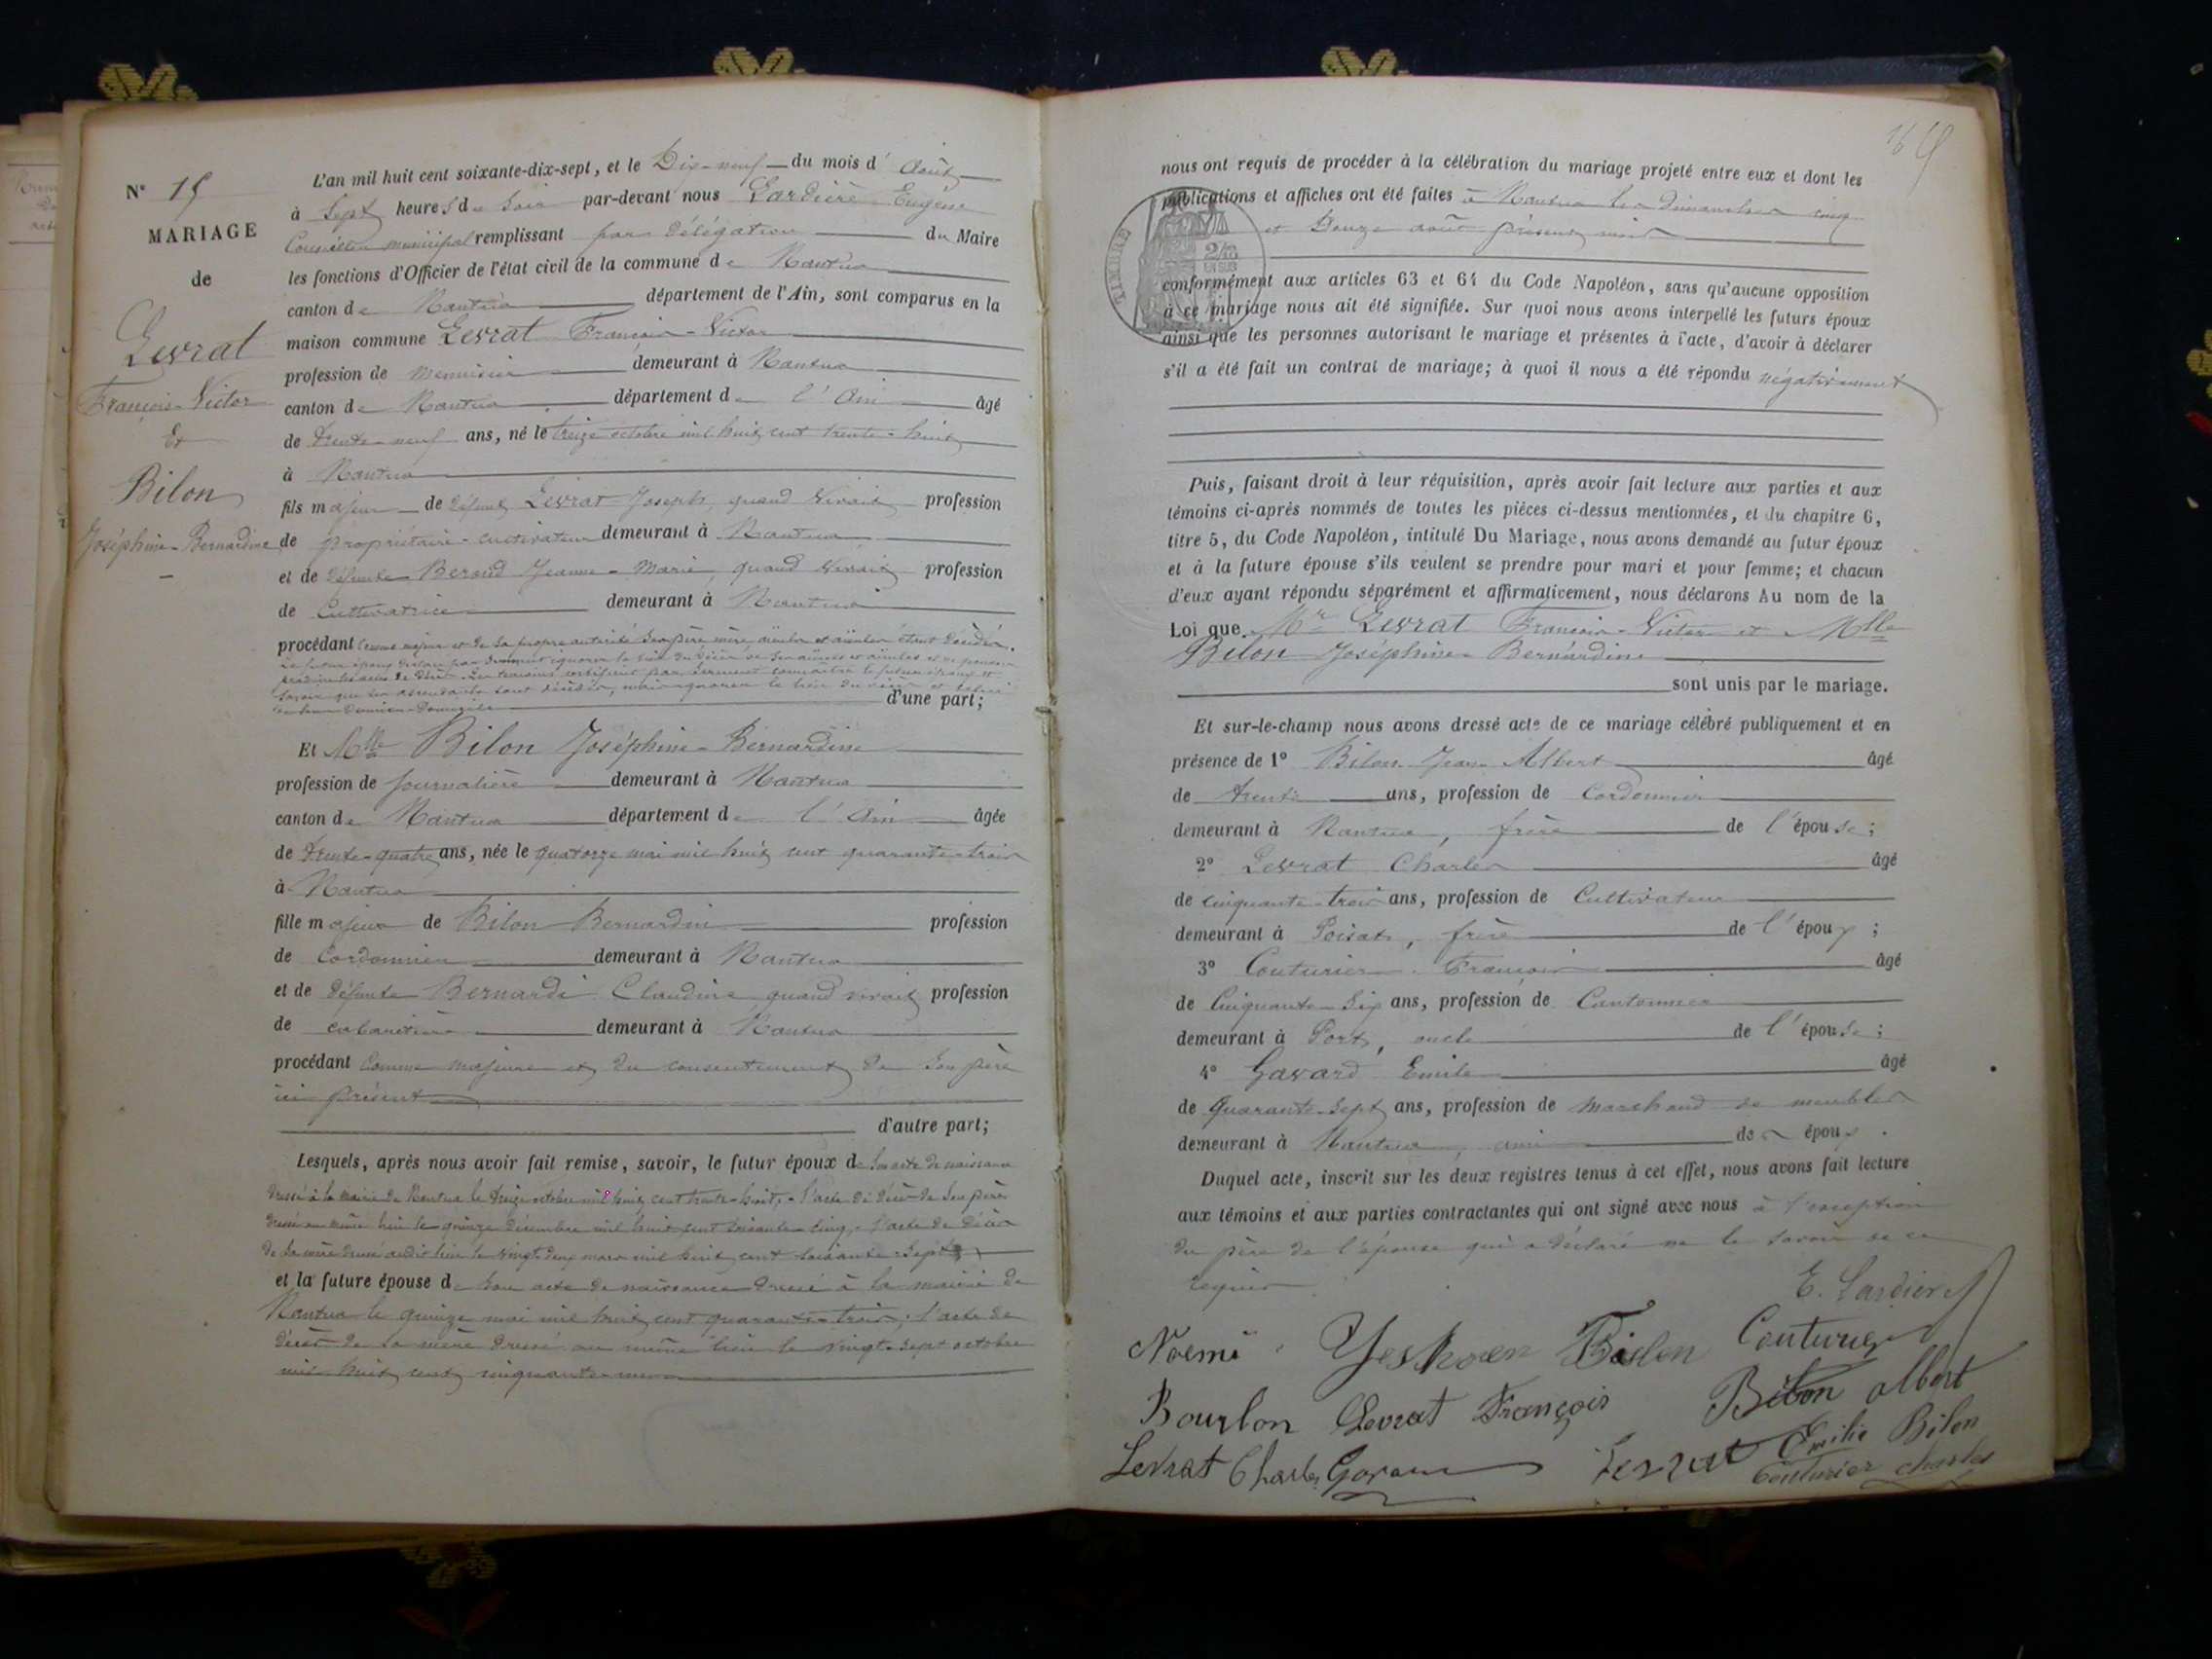 N° 15
MARIAGE
de
Levrat
François-Victor
Et
Bilon
Joséphine-Bernardine
L'an mil huit cent soixante-dix-sept, et le Dix-neuf du mois d' août
à sept heures du soir par-devant nous Lardière Eugène
Conseiller municipal remplissant par délégation du Maire
les fonctions d'Officier de l'état civil de la commune de Nantua
canton de Nantua département de l'Ain, sont comparus en la
maison commune Levrat François-Victor
profession de menuisier demeurant à Nantua
canton de Nantua département de l'Ain âgé
de trente-neuf ans, né le treize octobre mil huit cent trente-huit
à Nantua
fils majeur de défunt Levrat Joseph, quand vivait profession
de propriétaire-cultivateur demeurant à Nantua
et de défunte Beroud Jeanne-Marie, quand vivait profession
de Cultivatrice demeurant à Nantua
procédant comme majeur et de sa propre autorité ses père, mère, aïeuls et aïeules étant décédés.
Le futur époux déclare par serment ignorer le lieu du décès de ses aïeuls et aïeules et ne pouvoir
produire les actes de décès. Les témoins certifient par serment connaître le futur époux et
savoir que ses ascendants sont décédés, mais ignorer le lieu du décès et celui
de leur dernier domicile d'une part;
Et Mlle Bilon Joséphine-Bernardine
profession de journalière demeurant à Nantua
canton de Nantua département de l'Ain âgée
de trente-quatre ans, née le quatorze mai mil huit cent quarante-trois
à Nantua
fille majeure de Bilon Bernardin profession
de Cordonnier demeurant à Nantua
et de défunte Bernardi Claudine quand vivait profession
de cabaretière demeurant à Nantua
procédant comme majeure et du consentement de son père
ici présent
d'autre part;
Lesquels, après nous avoir fait remise, savoir, le futur époux de son acte de naissance
dressé à la mairie de Nantua le treize octobre mil huit cent trente-huit, - l'acte de décès de son père
dressé au même lieu le quinze décembre mil huit cent soixante-cinq, - l'acte de décès
de sa mère dressé audit lieu le vingt deux mars mil huit cent soixante-sept
et la future épouse de son acte de naissance dressé à la mairie de
Nantua le quinze mai mil huit cent quarante-trois, l'acte de
décès de sa mère dressé au même lieu le vingt-sept octobre
mil huit cent cinquante-
16
nous ont requis de procéder à la célébration du mariage projeté entre eux et dont les
publications et affiches ont été faites à Nantua les dimanches cinq
et Douze août présent mois
TIMBRE
conformément aux articles 63 et 64 du Code Napoléon, sans qu'aucune opposition
à ce mariage nous ait été signifiée. Sur quoi nous avons interpellé les futurs époux
ainsi que les personnes autorisant le mariage et présentes à l'acte, d'avoir à déclarer
s'il a été fait un contrat de mariage; à quoi il nous a été répondu négativement
Puis, faisant droit à leur réquisition, après avoir fait lecture aux parties et aux
témoins ci-après nommés de toutes les pièces ci-dessus mentionnées, et du chapitre 6,
titre 5, du Code Napoléon, intitulé Du Mariage, nous avons demandé au futur époux
et à la future épouse s'ils veulent se prendre pour mari et pour femme; et chacun
d'eux ayant répondu séparément et affirmativement, nous déclarons Au nom de la
Loi que Mr Levrat François-Victor et Mlle
Bilon Joséphine-Bernardine
sont unis par le mariage.
Et sur-le-champ nous avons dressé acte de ce mariage célébré publiquement et en
présence de 1° Bilon Jean Albert âgé
de trente ans, profession de Cordonnier
demeurant à Nantua, frère de l'épouse;
2° Levrat Charles âgé
de cinquante-trois ans, profession de Cultivateur
demeurant à Poisat, frère de l'époux;
3° Couturier François âgé
de Cinquante-six ans, profession de Cantonnier
demeurant à Port, oncle de l'épouse;
4° Gavard Emile âgé
de Quarante-sept ans, profession de Marchand de meubles
demeurant à Nantua, ami des époux.
Duquel acte, inscrit sur les deux registres tenus à cet effet, nous avons fait lecture
aux témoins et aux parties contractantes qui ont signé avec nous à l'exception
du père de l'épouse qui a déclaré ne le savoir de ce
requis.
E. Lardière
Noémi Bilon Couturier
Bourlon Levrat François Bilon albert
Levrat Charles Gavard Levrat Emilie Bilon
Couturier charles